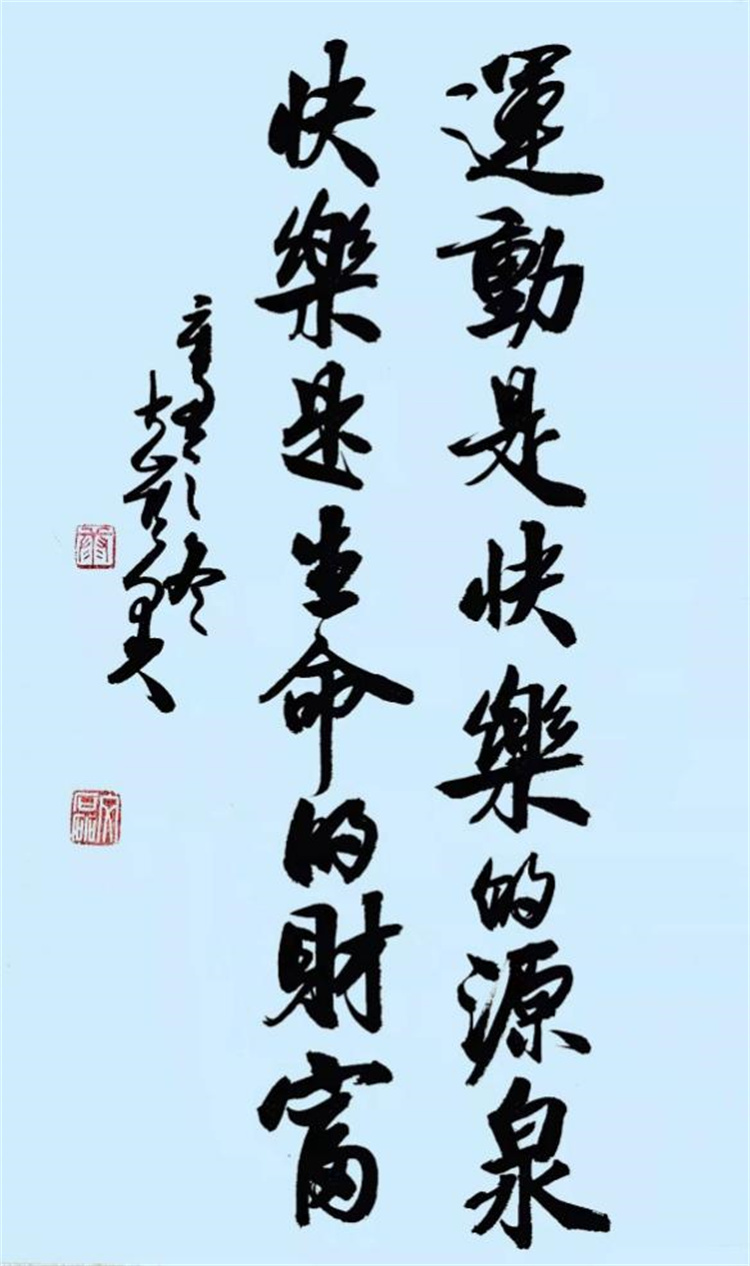 運動是快樂的源泉
快樂是生命的財富